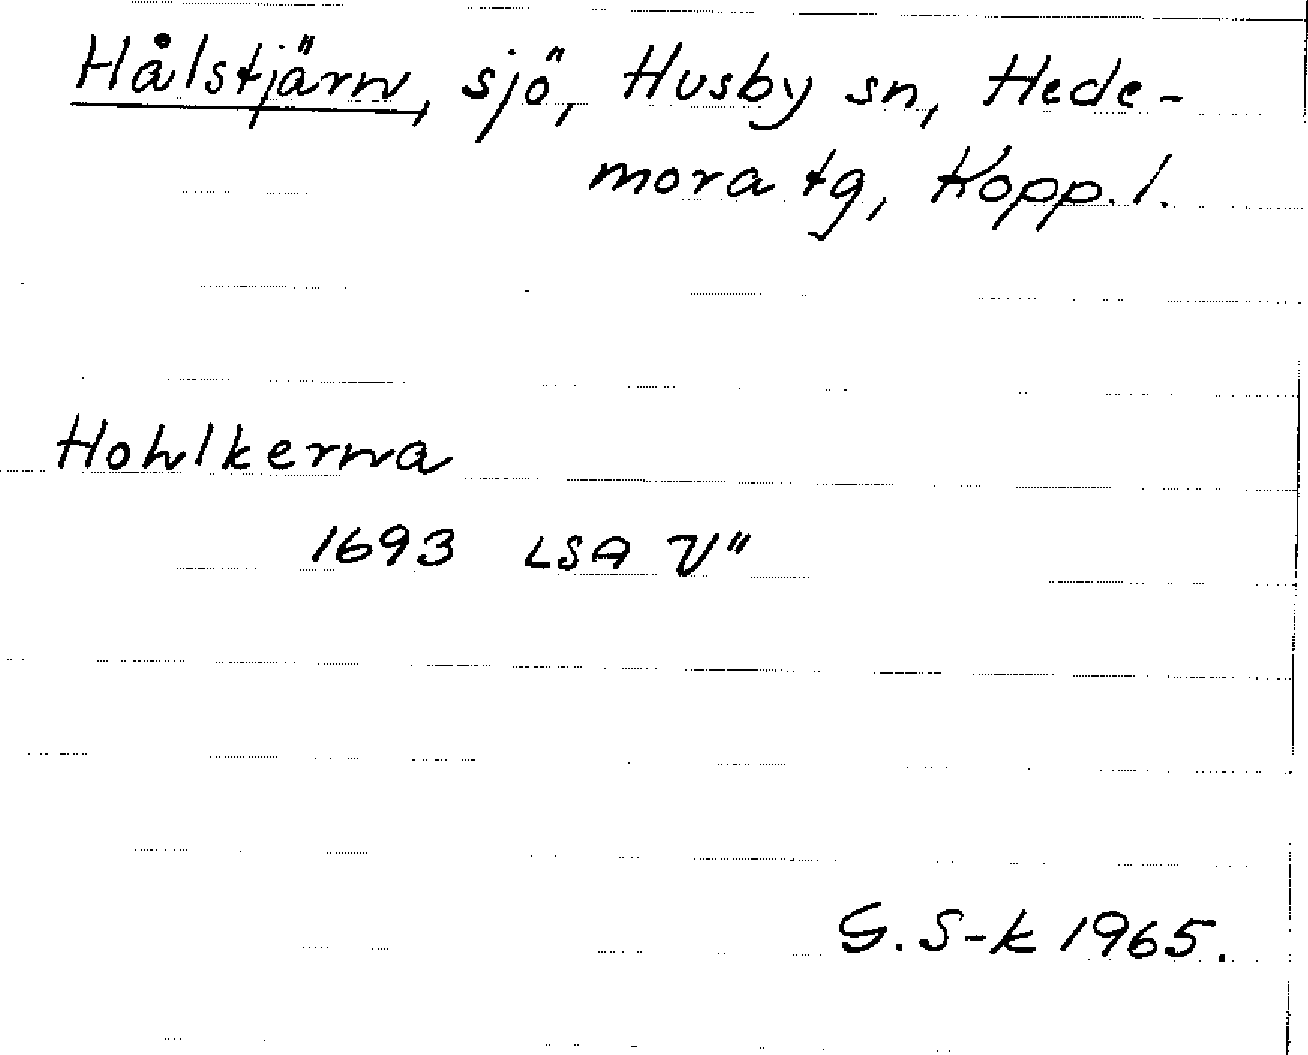 Hålstjärn, sjö, Husby sn, Hede-
mora tg, Kopp. l.
Hohlkerna
1693 LSA V"
G. S-k 1965.